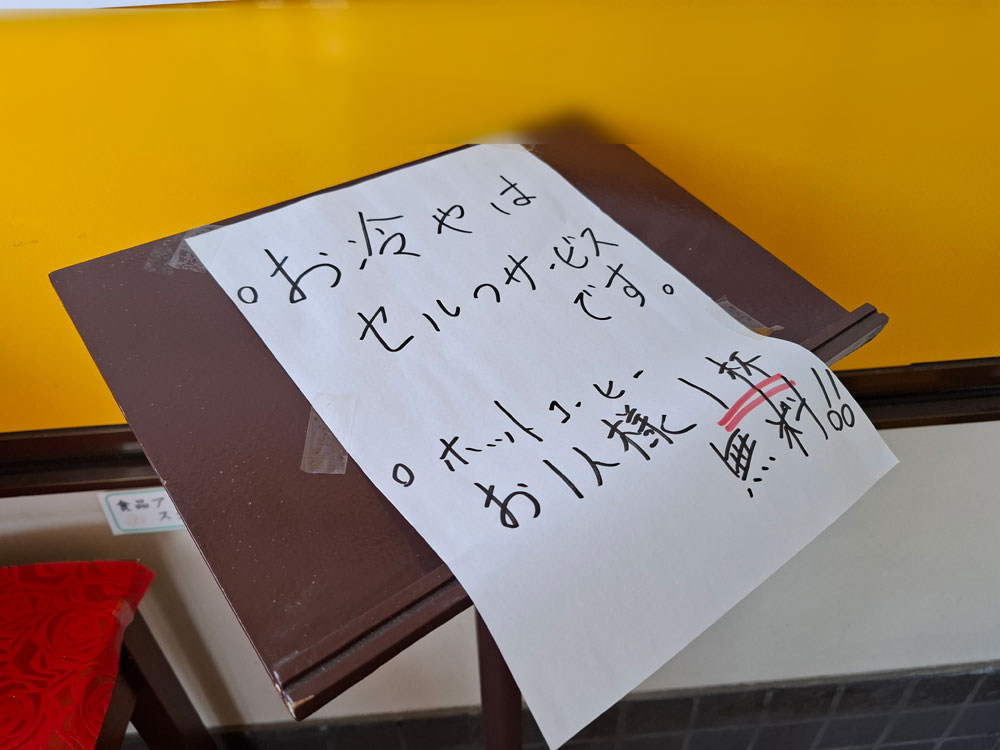 ○お冷やは
セルフサービス
です。
○ホットコーヒー
お1人様1杯
無料!!
食品ア
ス